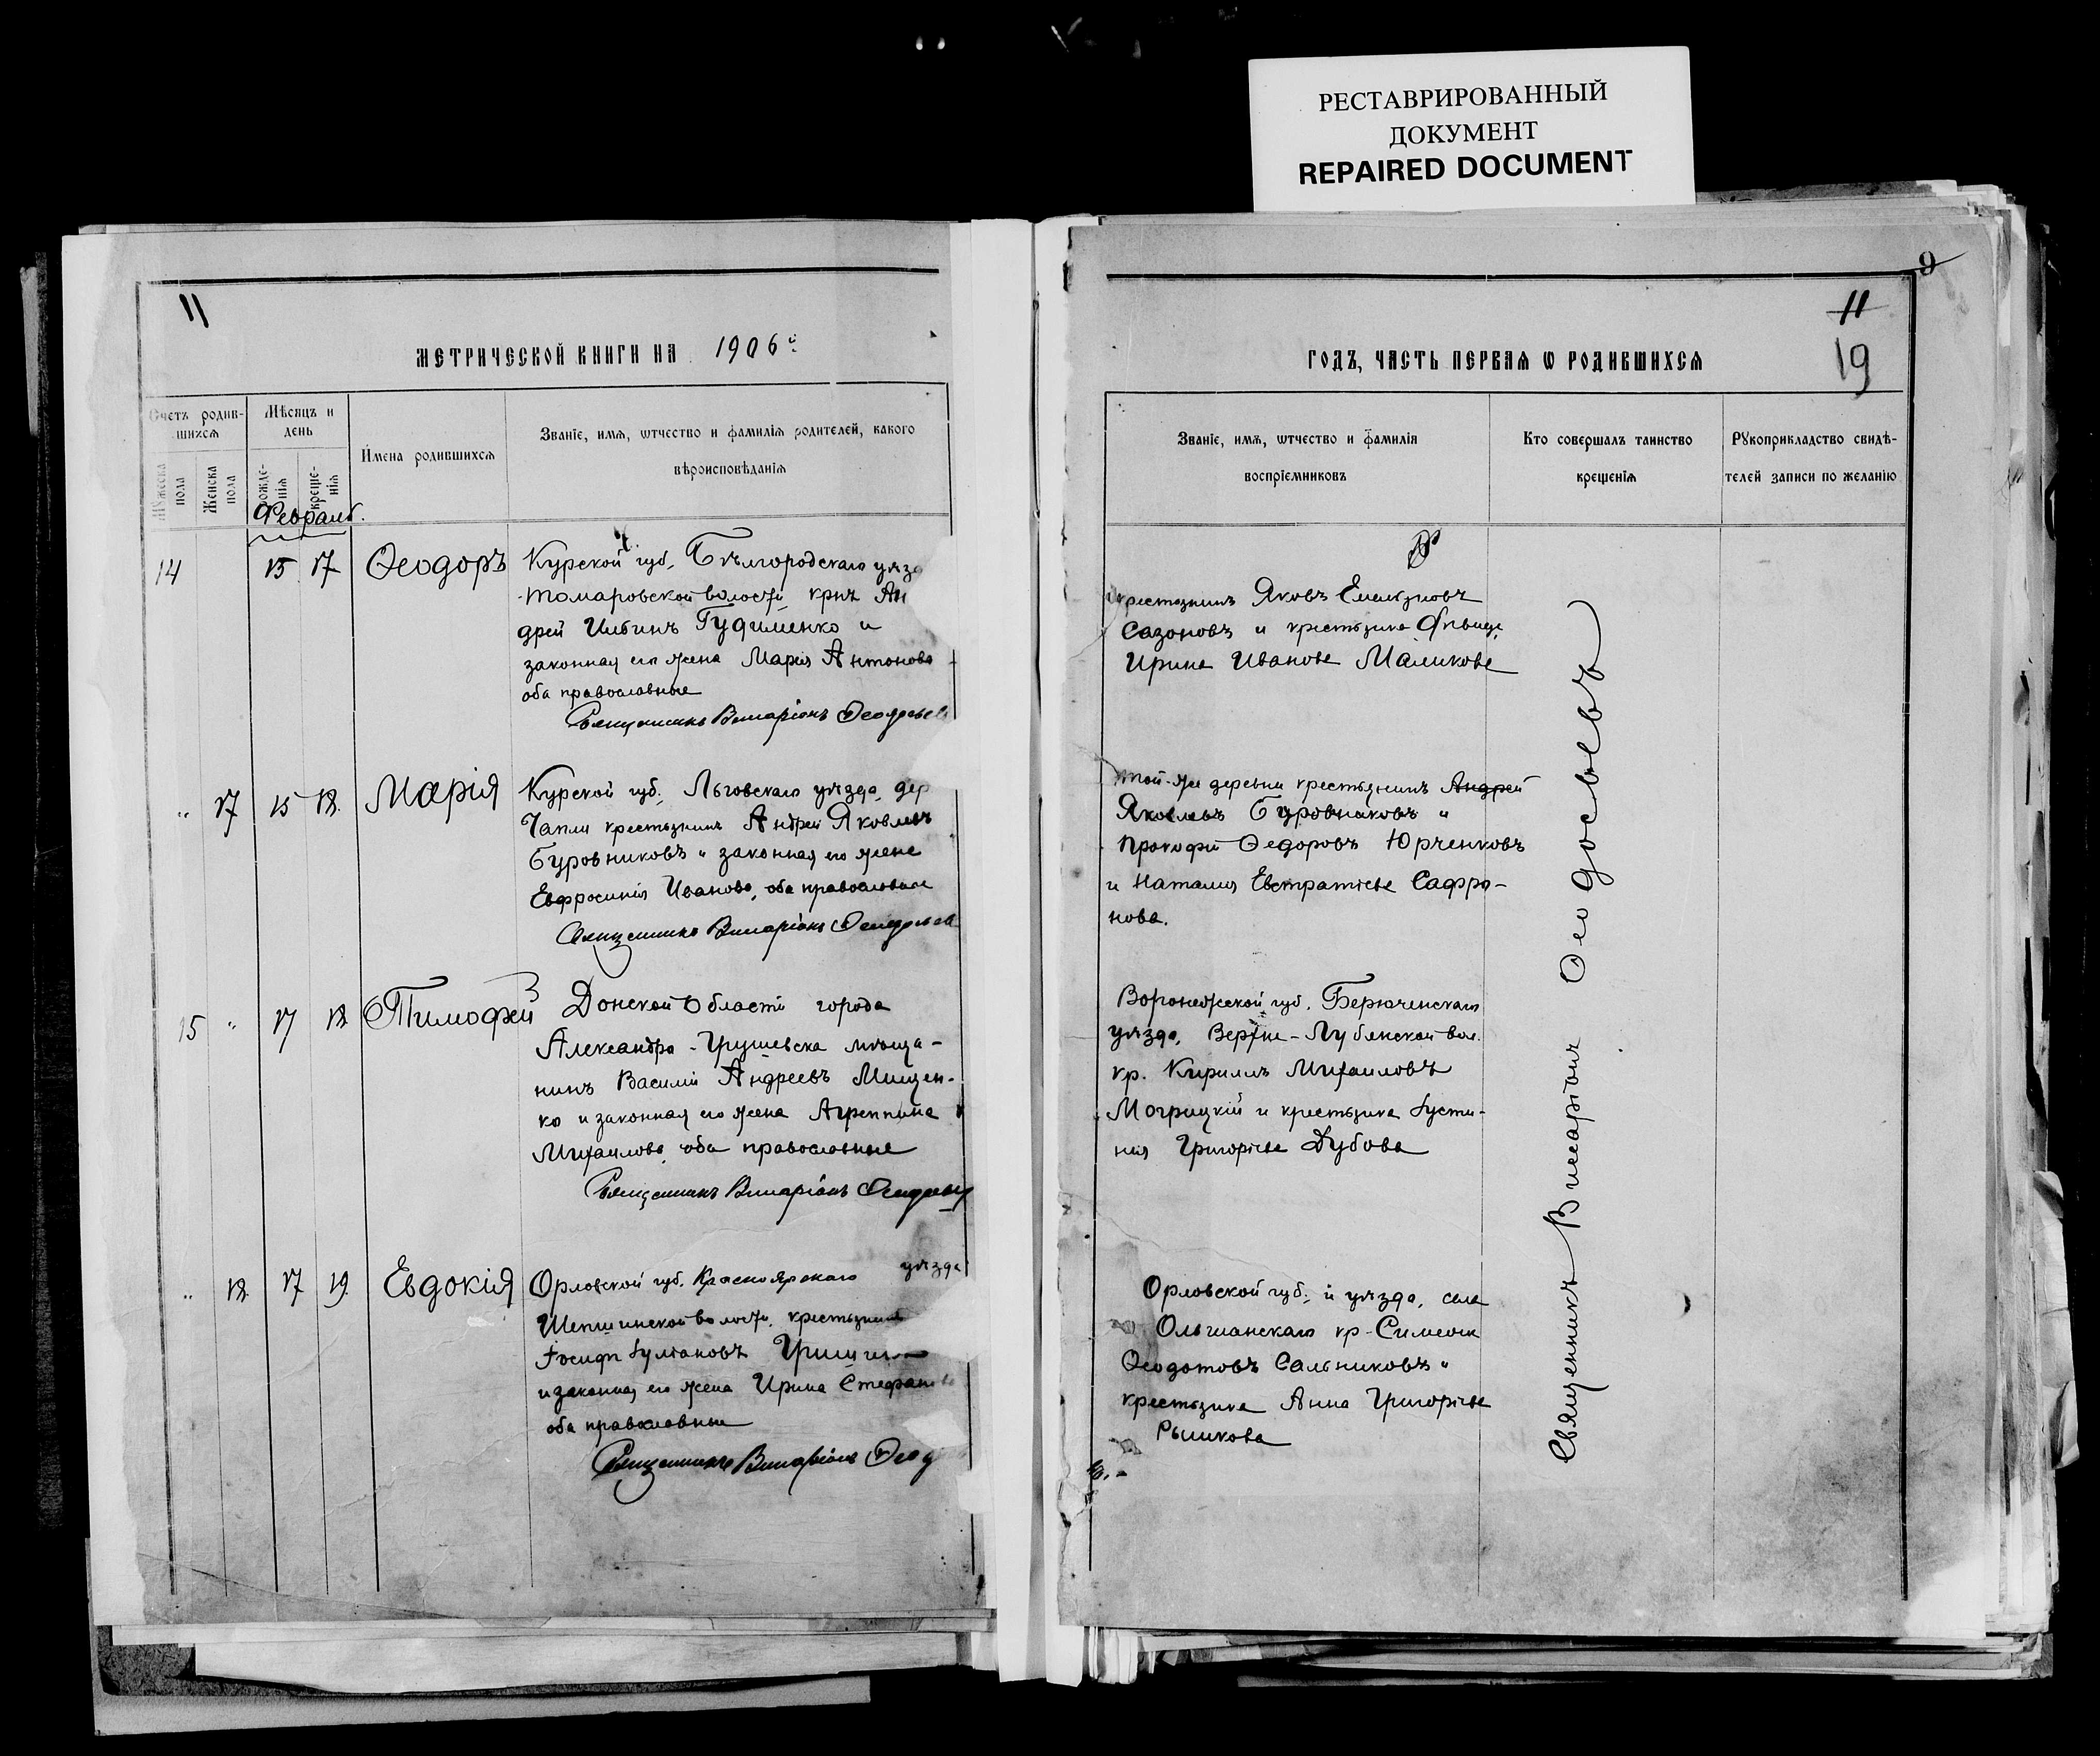 РЕСТАВРИРОВАННЫЙ
ДОКУМЕНТ
REPAIRED DOCUMENT
11
МЕТРИЧЕСКОЙ КНИГИ НА 1906
Счетъ родив-
шихсѧ
Мужеска пола
Женска пола
Мѣсяцъ и
день
рожде-
нія
креще-
нія
Имена родившихсѧ
Званіе, имѧ, ѡтчество и фамилія родителей, какого
вѣроисповѣданія
Февраль.
14 15 17 Ѳеодоръ
Курской губ. Бѣлгородскаго уѣзд
Томаровской волости крнъ Ан
дрей Ильинъ Гудименко и
законная его жена Марія Антонова
оба православные
Священникъ Виссаріонъ Ѳеодосьев
" 17 15 18. Марія
Курской губ. Льговскаго уѣзда, дер
Чапли крестьянинъ Андрей Яковлевъ
Буровниковъ и законная его жена
Евфросинія Иванова, оба православные
Священникъ Виссаріонъ Ѳеодосьев
15 " 17 18 Тимофей
Донской Области города
Александро-Грушевска мѣща-
нинъ Василій Андреевъ Мищен-
ко и законная его жена Агреппина
Михаилова, оба православные
Священникъ Виссаріонъ Ѳеодосьев
" 18. 17 19. Евдокія
Орловской губ. Красноярскаго уѣзда
волости, крестьянинъ
Іосифъ Іуліановъ
и законная его жена Ирина Стефанов
оба православные
Священникъ Виссаріонъ Ѳеод
9
11
19
ГОДЪ, ЧАСТЬ ПЕРВАѦ Ѡ РОДИВШИХСѦ
Званіе, имѧ, ѡтчество и фамилія
воспріемниковъ
Кто совершалъ таинство
крещенія
Рꙋкоприкладство свидѣ-
телей записи по желанію
крестьянинъ Яковъ Емельяновъ
Сазоновъ и крестьянка дѣвица
Ирина Иванова Маликова
той-же деревни крестьянинъ Андрей
Яковлевъ Буровниковъ и
Прокофій Ѳедоровъ Юрченковъ
и Наталія Евстратіева Сафро-
нова.
Воронежской губ. Бирюченскаго
уѣзда, Верхне-Лубянской вол.
кр. Кириллъ Михаиловъ
Могрицкій и крестьянка Іусти-
нія Григоріева Дубова
Орловской губ. и уѣзда, села
Ольшанскаго кр. Симеонъ
Ѳеодотовъ Сальниковъ и
крестьянка Анна Григоріева
Рышкова
Священникъ Виссаріонъ Ѳеодосьевъ